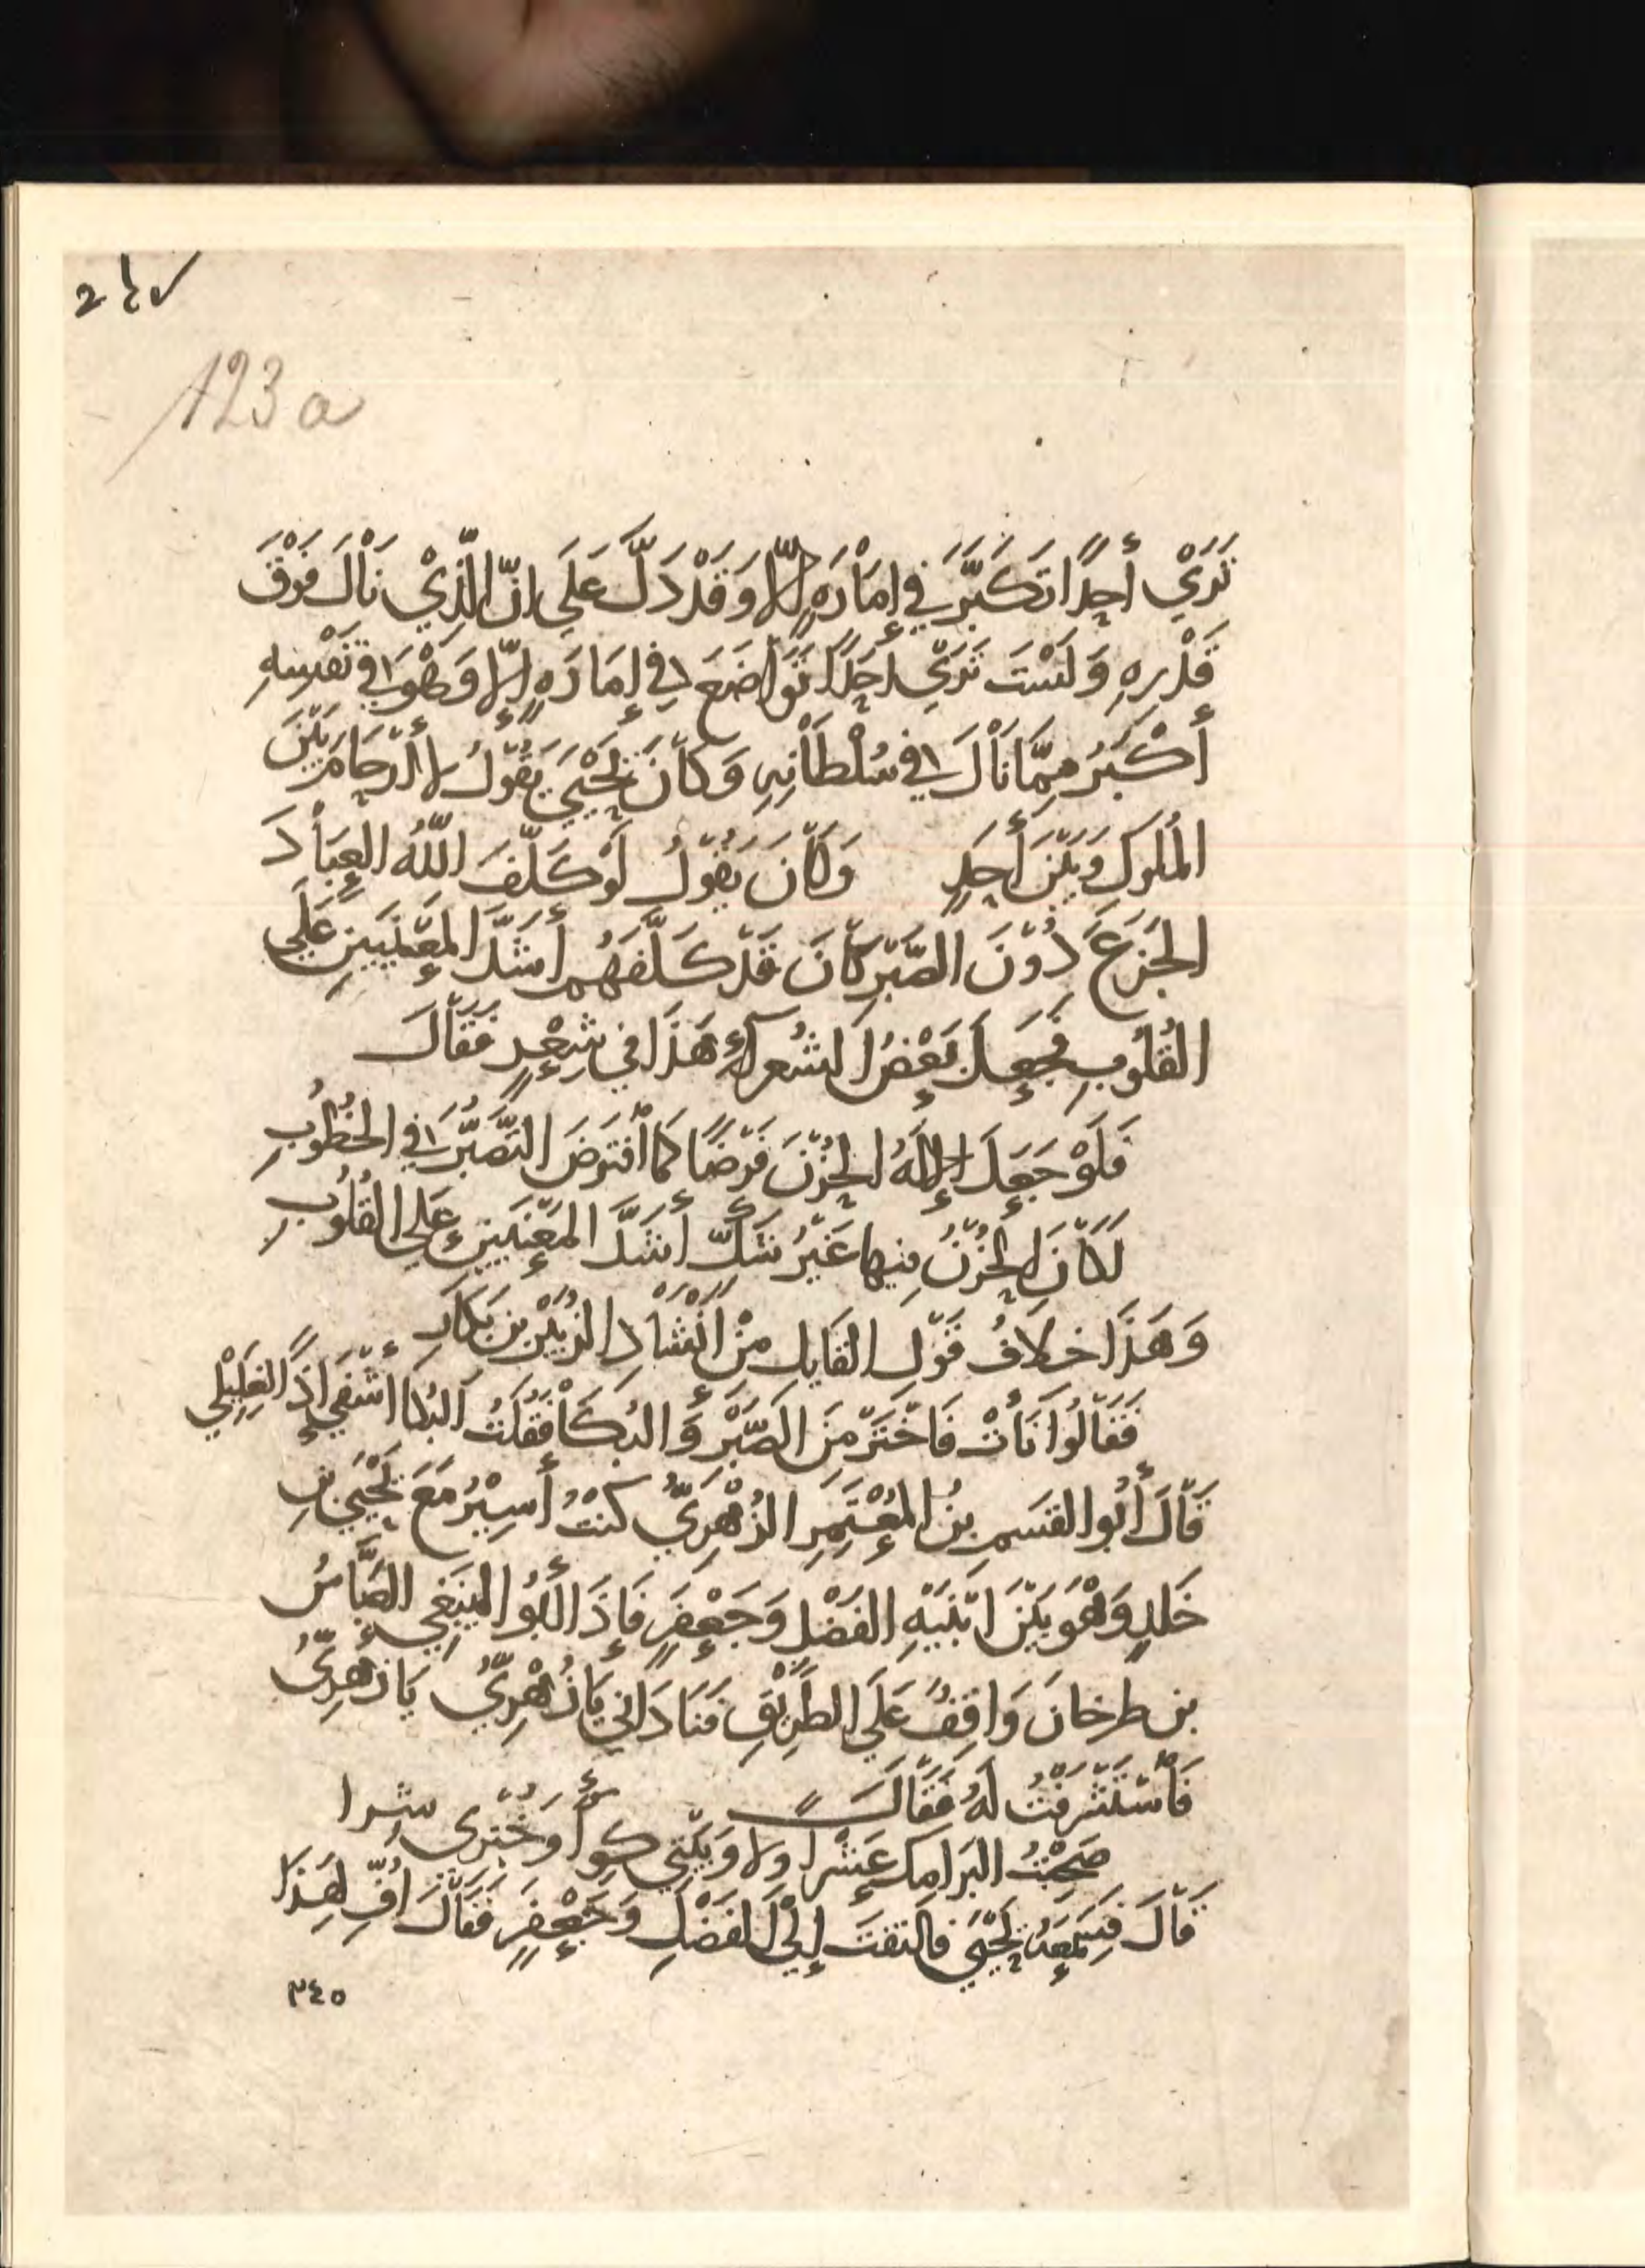 123 a
تَرَيْ أحَدًا تَكَبَّرَ في إمَاْرَةٍ إلّا وَقَدْ دَلَّ عَلَي انّ الَّذِيْ نَاْلَ فَوْقَ
قَدْرِهِ وَلَسْتَ تَرَيْ احَدًا تَوَاضَعَ في إمَارَةٍ إلّا وَهْوَ في نَفْسِهِ
أكْبَرُ مِمَّا نَاْلَ في سُلْطَاْنِهِ وَكَاْنَ يَحْيَيَ يَقُوْلُ لا أرْحَامَ بَيْنَ
المُلوكِ وَبَيْنَ أحَدٍ وَكَاْنَ يَقُوْلُ لَوْ كَلَّفَ اللّهُ العِبَاْدَ
الجَزَعَ دُوْنَ الصَّبْرِ كَاْنَ قَدْ كَلَّفَهُم أشَدَّ المَعْنَيَينِ عَلَي
القُلُوبِ فَجَعَلَ بَعْضُ الشُعراءِ هَذَا في شِعْرٍ فَقَاْلَ
فَلَوْ جَعَلَ الإلَهُ الحُزْنَ فَرْضًا كَمَا اْفتَرَضَ التَصَّبُّرَ في الخُطُوبِ
لَكَاْنَ الحُزْنُ فِيها غَيْرُ شَكٍّ أشَدَّ المَعْنَيَينِ عَلي القُلُوبِ
وَهَذَا خِلافُ قَوْلِ القَايل مِنْ انْشَاْدِ الزُبَيْرِ بن بَكَارِ
فَقَاْلُوا نَأتْ فَاخْتَرْ مِنَ الصَّبْرِ وَالبُكَاْ فَقُلْتُ البُكا أشْفَي إذًا لِغَلِيْلي
قَاْلَ أبُوا القَسَمِ بنُ المُعْتَمِرِ الزُهْرِيُّ كُنْتُ أسِيْرُ مَعَ يَحْيَي بنِ
خَلدٍ وَهْوَ بَيْنَ ابْنَيْهِ الفَضْلِ وَجَعْفَرٍ فَإذَا أبُو اليَنبَغي العَبَّاسُ
بن طرخانَ وَاقِفٌ عَلَي الطَرِيْقِ فَنَادَاني يَا زُهْرِيُّ يَا زُهْرِيُّ
فَاْسْتَشْرَفْتُ لَهُ فَقَاْلَ
صَحِبْتُ البَرَامِكَ عَشْرًا وِلا وَبَيْتِي كِرًأ وَخُبْزِي شِرا
قَاْلَ فَسَمِعَهُ يَحْيَي فالتفَتَ إلَي الفَضْلِ وَجَعْفَرٍ فَقَاْلَ افِّ لِهَذَا
٣٤٥